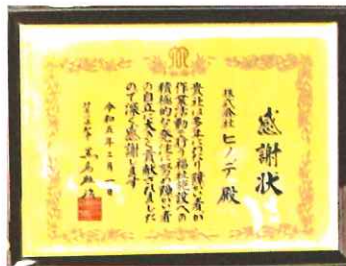 感謝状
株式会社
ヒノデ 殿
貴社は多年にわたり障がい者が
作業活動を行う福祉施設への
積極的な発注に努め障がい者
の自立に大きく貢献されました
ので深く感謝します
令和五年二月一日